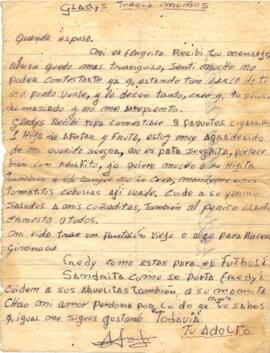 GLADYS TODAVIA UNIDOS
Querida esposa.
Mi ex flaquita. Recibi tu mensaje
ahora quedo mas tranquilo, Senti mucho no
poder contestarte ya q, estando tan cerca de ti
no puedo verte, y lo deseo tanto, creo q, te quiero
demasiado y no me arrepiento.
Gladys Recibi ropa comestible 3 paquetes cigarrillos
y Hoja de afeitar y fruta, estoy muy agradecido
de mi querida suegra, no es pata suegrita, portese
bien con Adolfito, yo quiero mucho a su Hijita
tambien a el aunque no lo crea, mandeme
tomatitos cebollas aji verde, Cuide a su yerno
Saludos a mis cuñaditas, También al perico claudio
ernesto y todos.
Mi vida trae un Pantalón Viejo o algo para Hacer
Gimnasia
Fredy como estas para el FUTBOL?
Sandrita como se porta Fredy?
Cuiden a sus Abuelitas también, a su mamita
Chao mi amor Perdona por lo de ex tu sabes
flaquita
q, igual me sigues gustando "TODAVIA"
TU ADOLFO